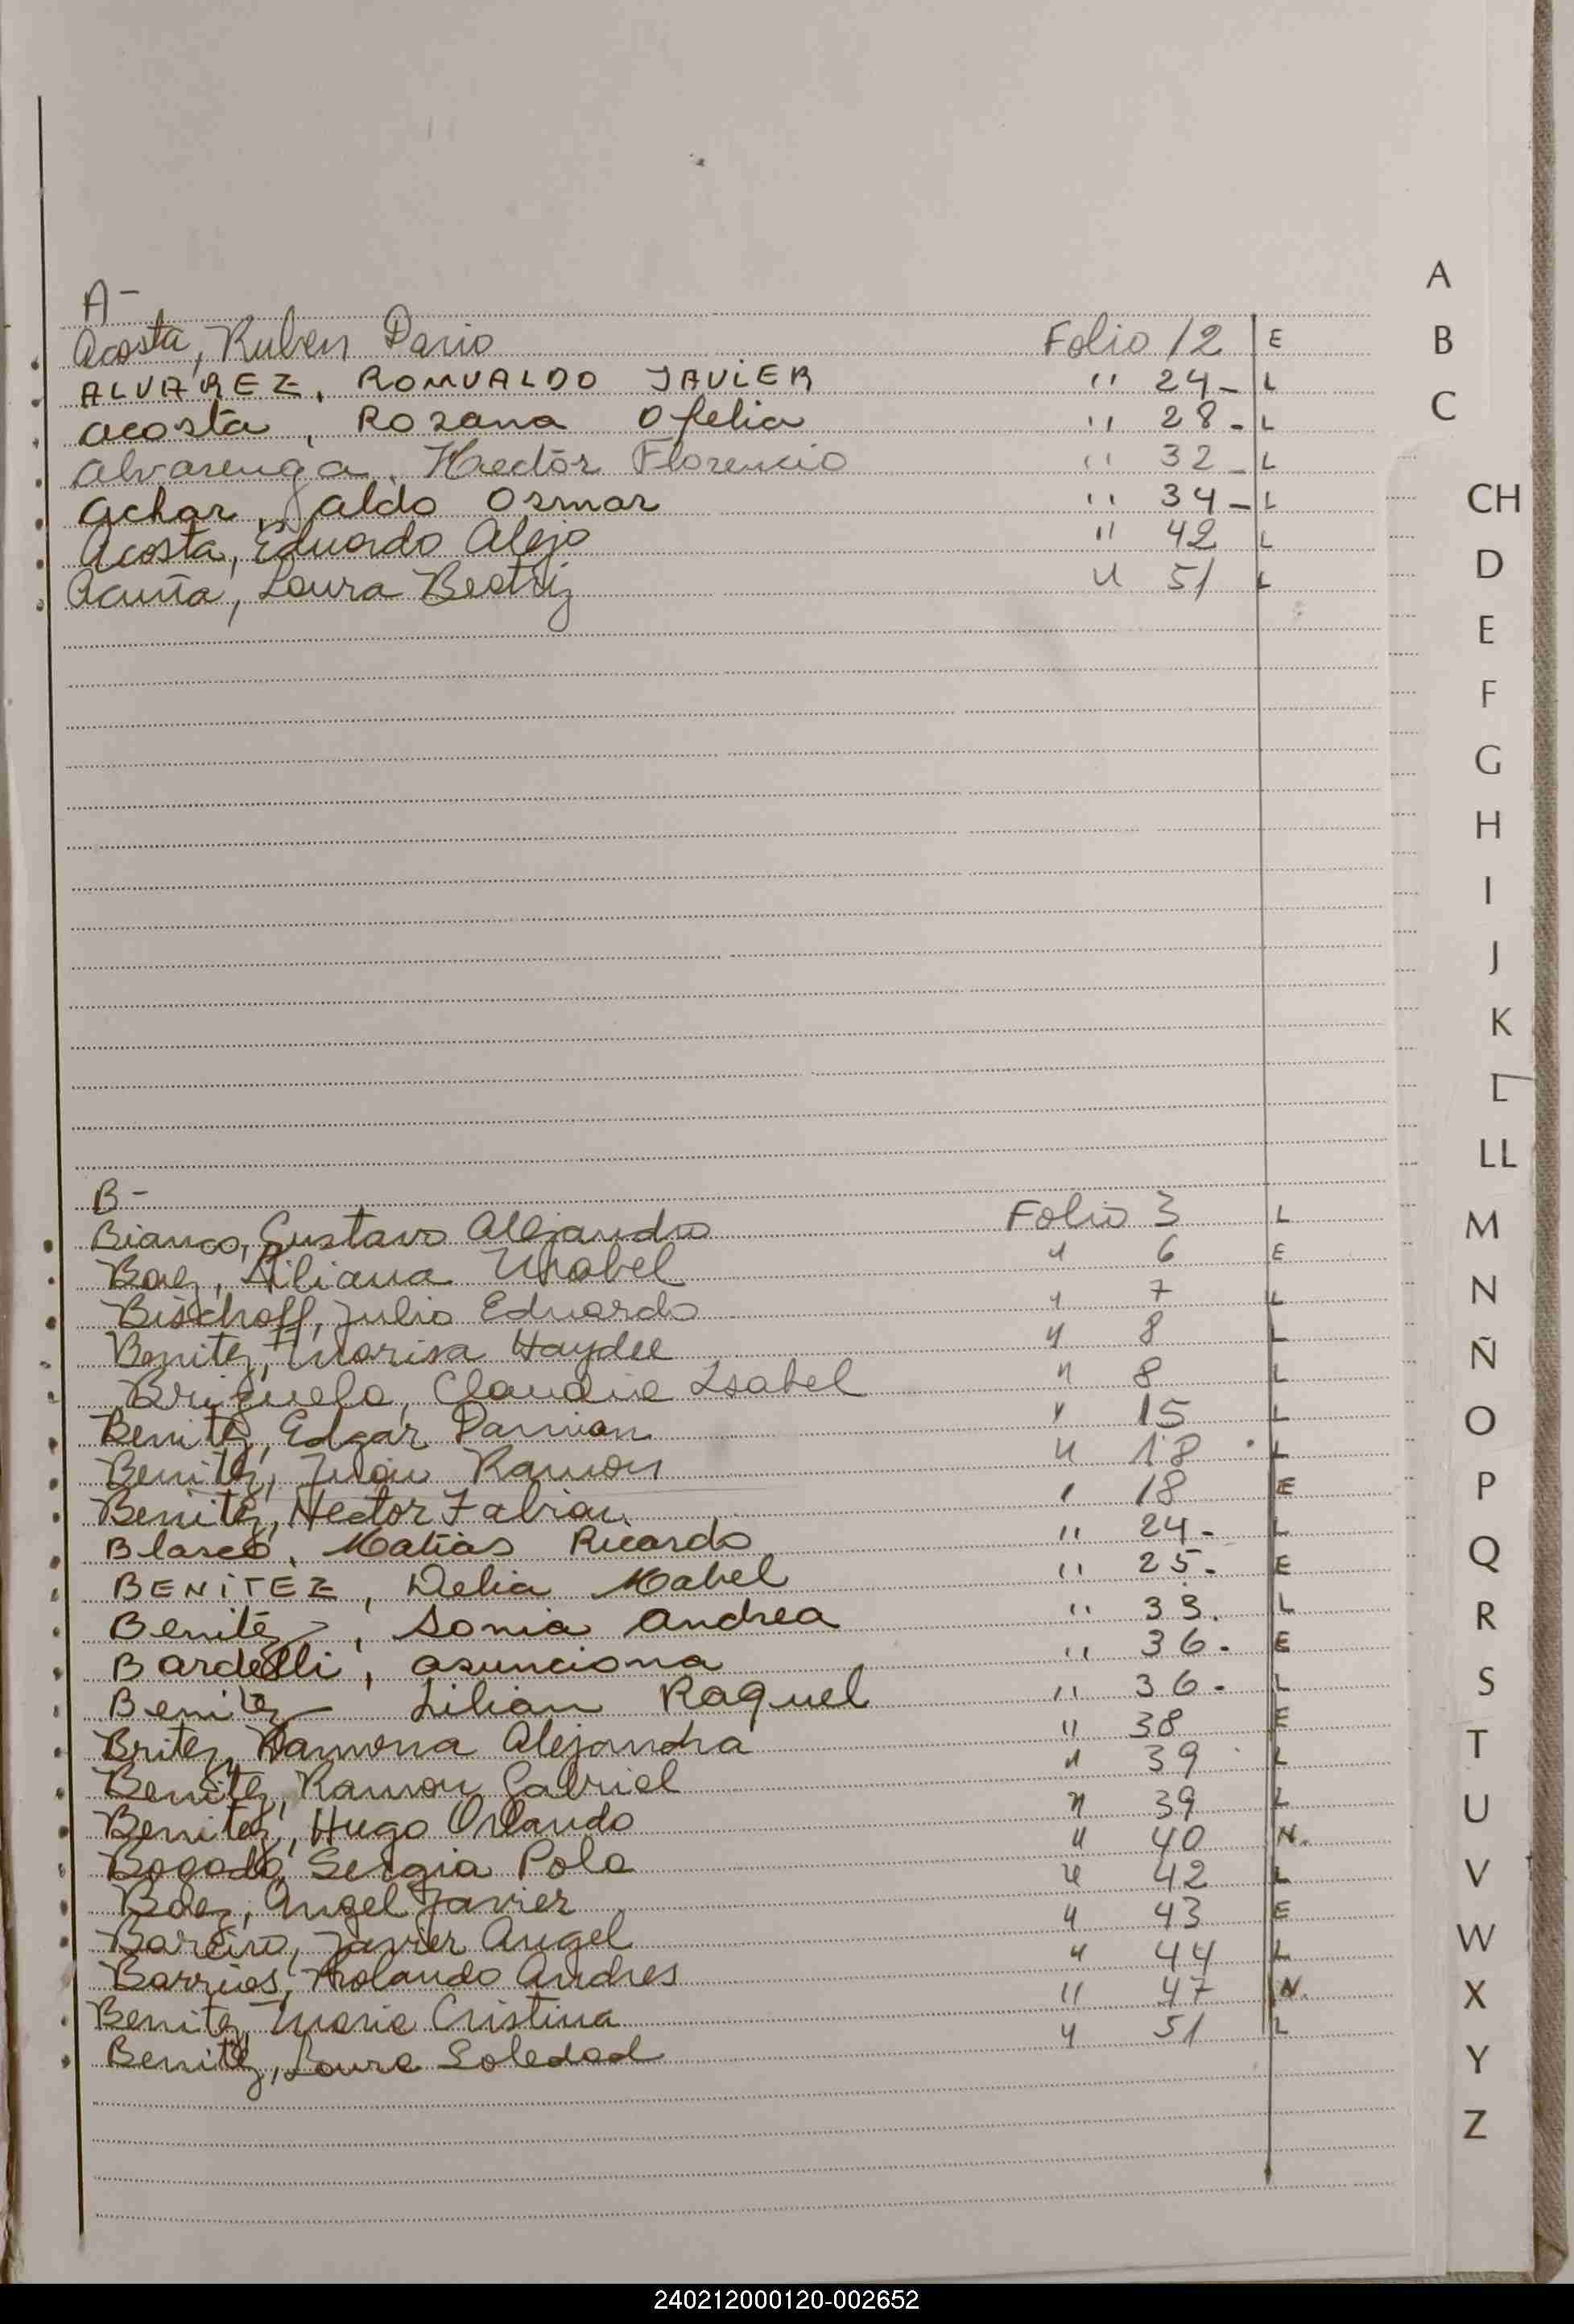 A-
Acosta, Ruben Dario Folio 12 E
ALVAREZ, ROMUALDO JAVIER " 24- L
Acosta, Rozana Ofelia " 28- L
Alvarenga, Hector Florencio " 32- L
Achar, Aldo Osmar " 34- L
Acosta, Eduardo Alejo " 42 L
Acuña, Laura Beatriz " 51 L
B-
Bianco, Gustavo Alejandro Folio 3 L
Baez, Liliana Mabel " 6 E
Bischoff, Julio Eduardo " 7 L
Benitez, Marisa Haydee " 8 L
Briñuela, Claudia Isabel " 8 L
Benitez, Edgar Damian " 15 L
Benitez, Juan Ramon " 18 L
Benitez, Hector Fabian " 18 E
Blasco, Matias Ricardo " 24- L
BENÍTEZ, Delia Mabel " 25- E
Benitez, Sonia Andrea " 33. L
Bardelli, Asunciona " 36- E
Benitez Lilian Raquel " 36- L
Britez, Ramona Alejandra " 38 E
Benitez, Ramon Gabriel " 39 L
Benitez, Hugo Orlando " 39 L
Bogado, Sergia Pola " 40 N.
Baez, Angel Javier " 42 L
Bareiro, Javier Angel " 43 E
Barrios, Rolando Andres " 44 L
Benitez, Maria Cristina " 47 N.
Benitez, Laura Soledad " 51 L
A
B
C
CH
D
E
F
G
H
I
J
K
L
LL
M
N
Ñ
O
P
Q
R
S
T
U
V
W
X
Y
Z
240212000120-002652